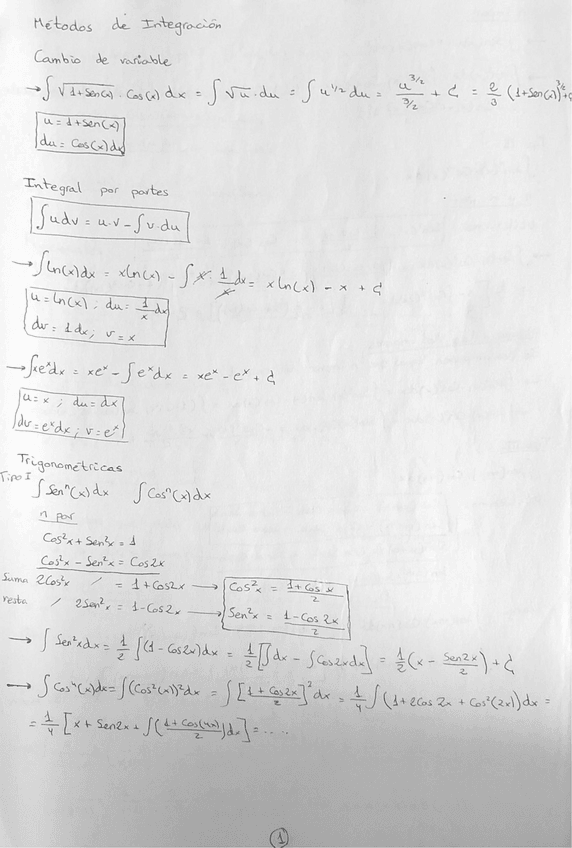 Métodos de Integración
Cambio de variable
→ ∫ √(1+Sen(x)) · Cos(x) dx = ∫ √u · du = ∫ u^(1/2) du = u^(3/2) / (3/2) + C = 2/3 (1+Sen(x))^(3/2) + C
u = 1+Sen(x)
du = Cos(x) dx
Integral por partes
∫ u dv = u·v - ∫ v·du
→ ∫ ln(x) dx = x ln(x) - ∫ x · 1/x dx = x ln(x) - x + C
u = ln(x) ; du = 1/x dx
dv = 1 dx ; v = x
→ ∫ x e^x dx = x e^x - ∫ e^x dx = x e^x - e^x + C
u = x ; du = dx
dv = e^x dx ; v = e^x
Trigonométricas
Tipo I
∫ Sen^n(x) dx ∫ Cos^n(x) dx
n par
Cos²x + Sen²x = 1
Cos²x - Sen²x = Cos2x
Suma 2Cos²x / = 1 + Cos2x → Cos²x = (1 + Cos x)/2
resta / 2Sen²x = 1 - Cos2x → Sen²x = (1 - Cos2x)/2
→ ∫ Sen²x dx = 1/2 ∫ (1 - Cos2x) dx = 1/2 [∫ dx - ∫ Cos2x dx] = 1/2 (x - Sen2x/2) + C
→ ∫ Cos⁴(x) dx = ∫ (Cos²(x))² dx = ∫ [(1 + Cos2x)/2]² dx = 1/4 ∫ (1 + 2Cos 2x + Cos²(2x)) dx =
= 1/4 [x + Sen2x + ∫ ((1 + Cos(4x))/2) dx] = ....
1